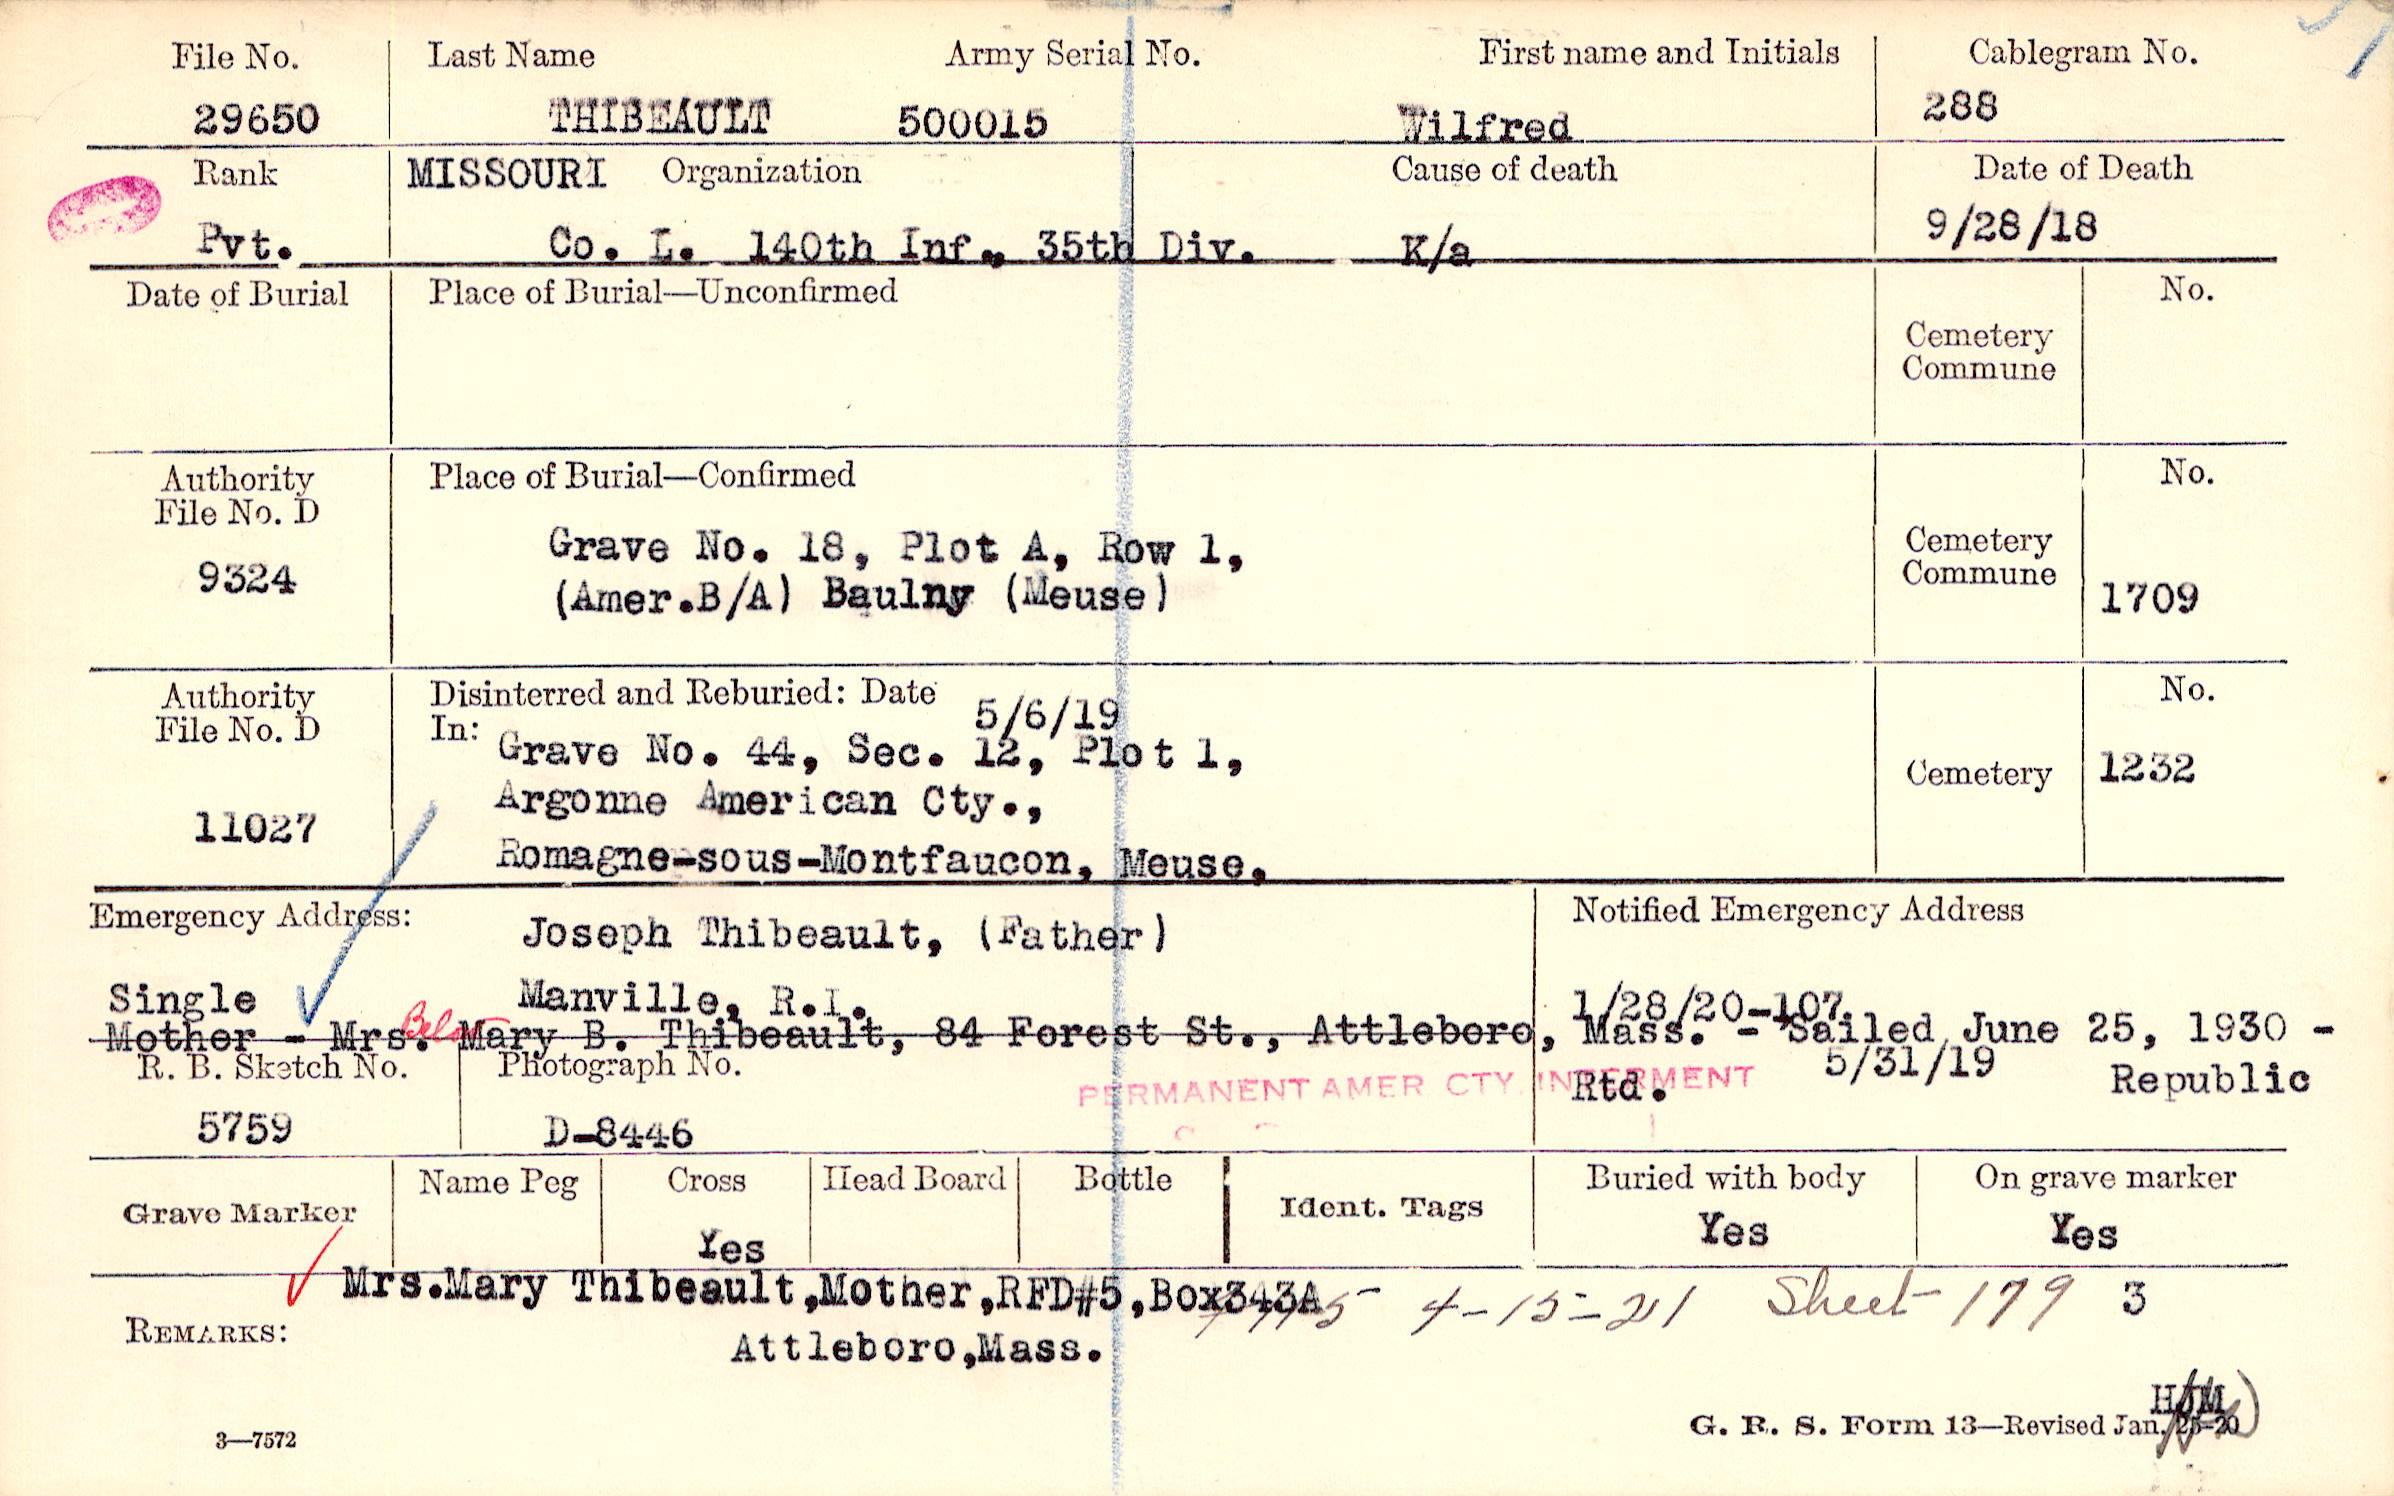 File No. Last Name Army Serial No. First name and Initials Cablegram No.
29650 THIBEAULT 500015 Wilfred 288
Rank MISSOURI Organization Cause of death Date of Death
Pvt. Co. L. 140th Inf., 35th Div. K/a 9/28/18
Date of Burial Place of Burial—Unconfirmed No.
Cemetery
Commune
Authority Place of Burial—Confirmed No.
File No. D
Grave No. 18, Plot A, Row 1, Cemetery
9324 (Amer.B/A) Baulny (Meuse) Commune 1709
Authority Disinterred and Reburied: Date 5/6/19 No.
File No. D In:
Grave No. 44, Sec. 12, Plot 1, Cemetery 1232
Argonne American Cty.,
11027
Romagne-sous-Montfaucon, Meuse.
Emergency Address: Joseph Thibeault, (Father) Notified Emergency Address
Single Manville, R.I. 1/28/20-107
Below
Mother - Mrs. Mary B. Thibeault, 84 Forest St., Attleboro, Mass. - Sailed June 25, 1930 -
R. B. Sketch No. Photograph No. 5/31/19
PERMANENT AMER CTY. INTERMENT Rtd. Republic
5759 D-8446
Grave Marker Name Peg Cross Head Board Bottle Ident. Tags Buried with body On grave marker
Yes Yes Yes
Mrs.Mary Thibeault,Mother,RFD#5,Box343A 4-15-21 Sheet 179 3
REMARKS: Attleboro,Mass.
HJM
G. R. S. Form 13—Revised Jan. 25-20
3—7572